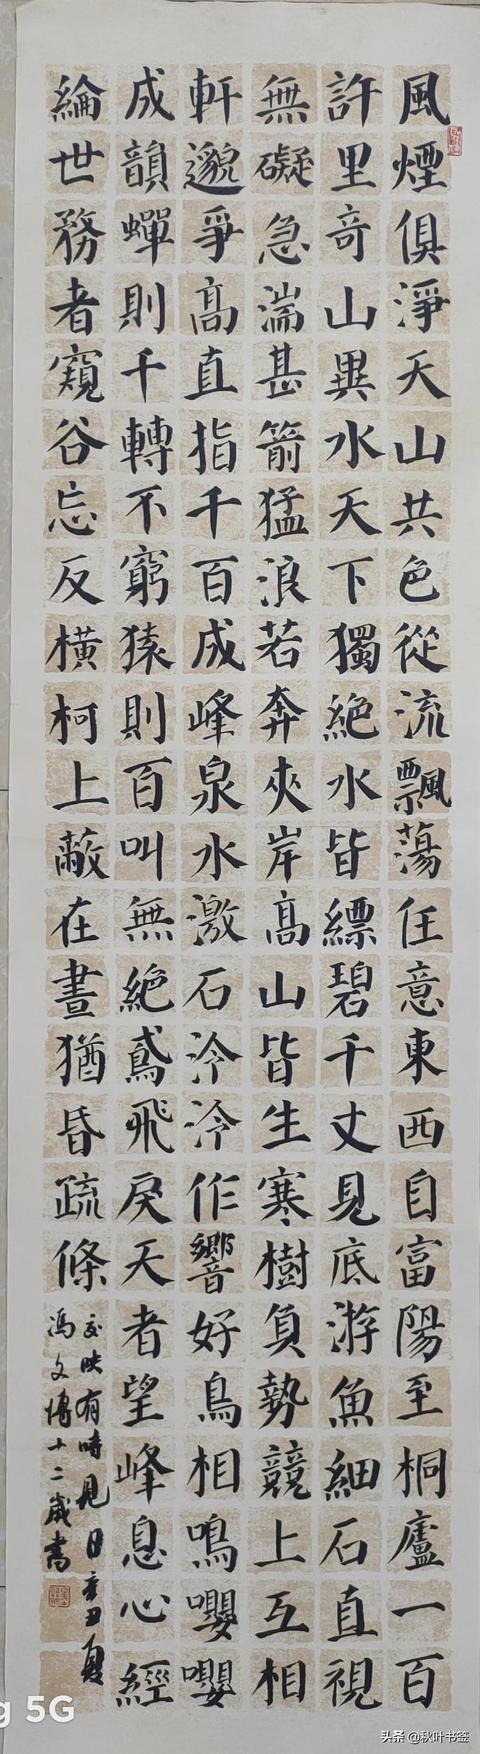 風煙俱淨天山共色從流飄蕩任意東西自富陽至桐廬一百
許里奇山異水天下獨絕水皆縹碧千丈見底游魚細石直視
無礙急湍甚箭猛浪若奔夾岸高山皆生寒樹負勢競上互相
軒邈爭高直指千百成峰泉水激石泠泠作響好鳥相鳴嚶嚶
成韻蟬則千轉不窮猿則百叫無絕鳶飛戾天者望峰息心經
綸世務者窺谷忘反橫柯上蔽在晝猶昏疏條
交映有時見日辛丑夏
馮文博十二歲書
g 5G
头条 @秋叶书签